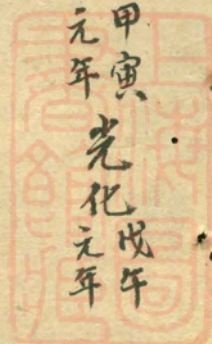 甲寅
元年
光化
戊午
元年